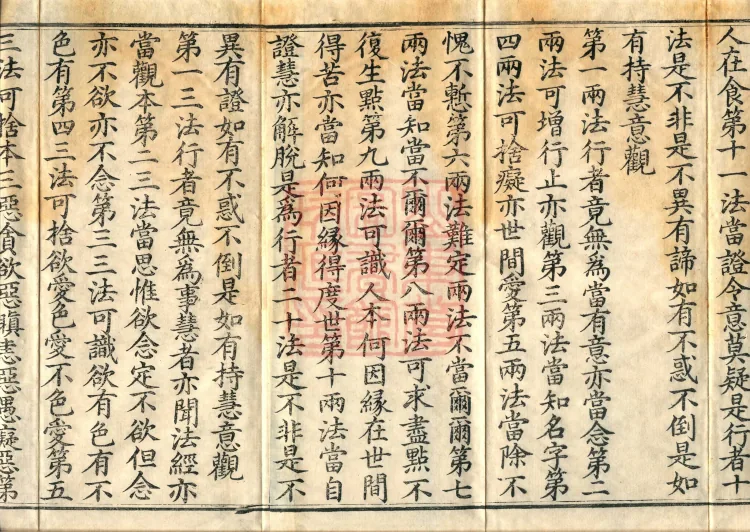 人在食第十一法當證令意莫疑是行者十
法是不非是不異有諦如有不惑不倒是如
有持慧意觀
第一兩法行者竟無為當有意亦當念第二
兩法可增行止亦觀第三兩法當知名字第
四兩法可捨癡亦世間愛第五兩法當除不
愧不慙第六兩法難定兩法不當爾爾第七
兩法當知當不爾爾第八兩法可求盡點不
復生點第九兩法可識人本何因緣在世間
得苦亦當知何因緣得度世第十兩法當自
證慧亦解脫是為行者二十法是不非是不
異有證如有不惑不倒是如有持慧意觀
第一三法行者竟無為事慧者亦聞法經亦
當觀本第二三法當思惟欲念定不欲但念
亦不欲亦不念第三三法可識欲有色有不
色有第四三法可捨欲愛色愛不色愛第五
三法可捨本三惡貪欲惡瞋恚惡愚癡惡第